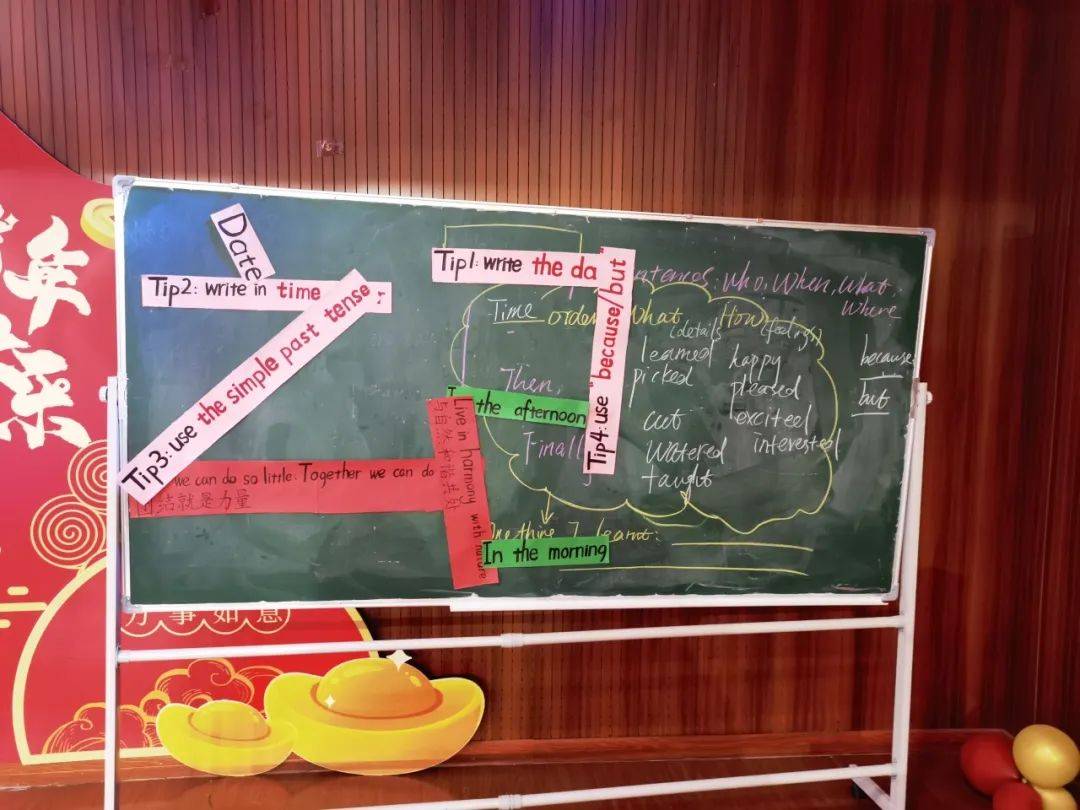 Date
Tip1: write the da
Tip2: write in time
Tip3: use the simple past tense
Tip4: use "because/but"
who, When, What,
Where
Time
order
What
How
(details
(feelings)
learned
picked
cut
watered
taught
happy
pleased
excited
interested
because
but
Then,
the afternoon
Finall
we can do so little: Together we can do
团结就是力量
Live in harmony with nature
与自然和谐共处
In the morning
One thing I learnt:
万事如意